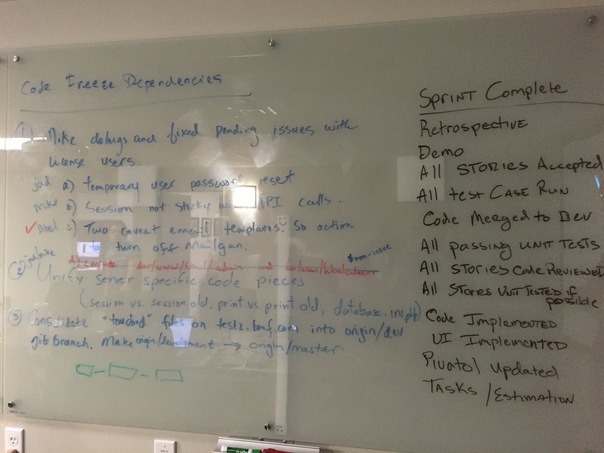 Code Freeze Dependencies
① Mike debugs and fixed pending issues with
license users.
a) temporary user password reset
b) Session not sticky on API calls.
c) Two cavect email templates. So action
to turn off mailgun.
② Unify server specific code pieces
(session vs. session.old, print vs print.old, database.ini.php)
③ Consolidate "touched" files on into origin/dev
git branch. Make origin/development → origin/master
SPRINT Complete
Retrospective
Demo
All STORIES Accepted
All test CASE RUN
Code Merged to DEV
All passing UNIT TESTS
All STORIES Code Reviewed
All Stories Unit TESTED if
possible
Code Implemented
UI Implemented
Pivatol Updated
TASKS /Estimation